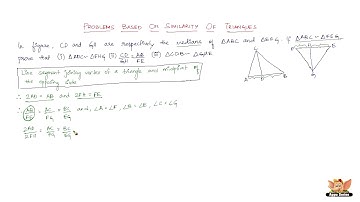 PROBLEMS BASED ON SIMILARITY OF TRIANGLES
In figure, CD and GH are respectively the medians of ΔABC and ΔEFG. If ΔABC ~ ΔFEG,
prove that (i) ΔADC ~ ΔFHG (ii) CD/GH = AB/FE (iii) ΔCDB ~ ΔGHE
Line segment joining vertex of a triangle and midpoint of
the opposite side
∴ 2AD = AB and 2FH = FE
∴ AB/FE = AC/FG = BC/EG and, ∠A = ∠F, ∠B = ∠E, ∠C = ∠G
2AD/2FH = AC/FG = BC/EG